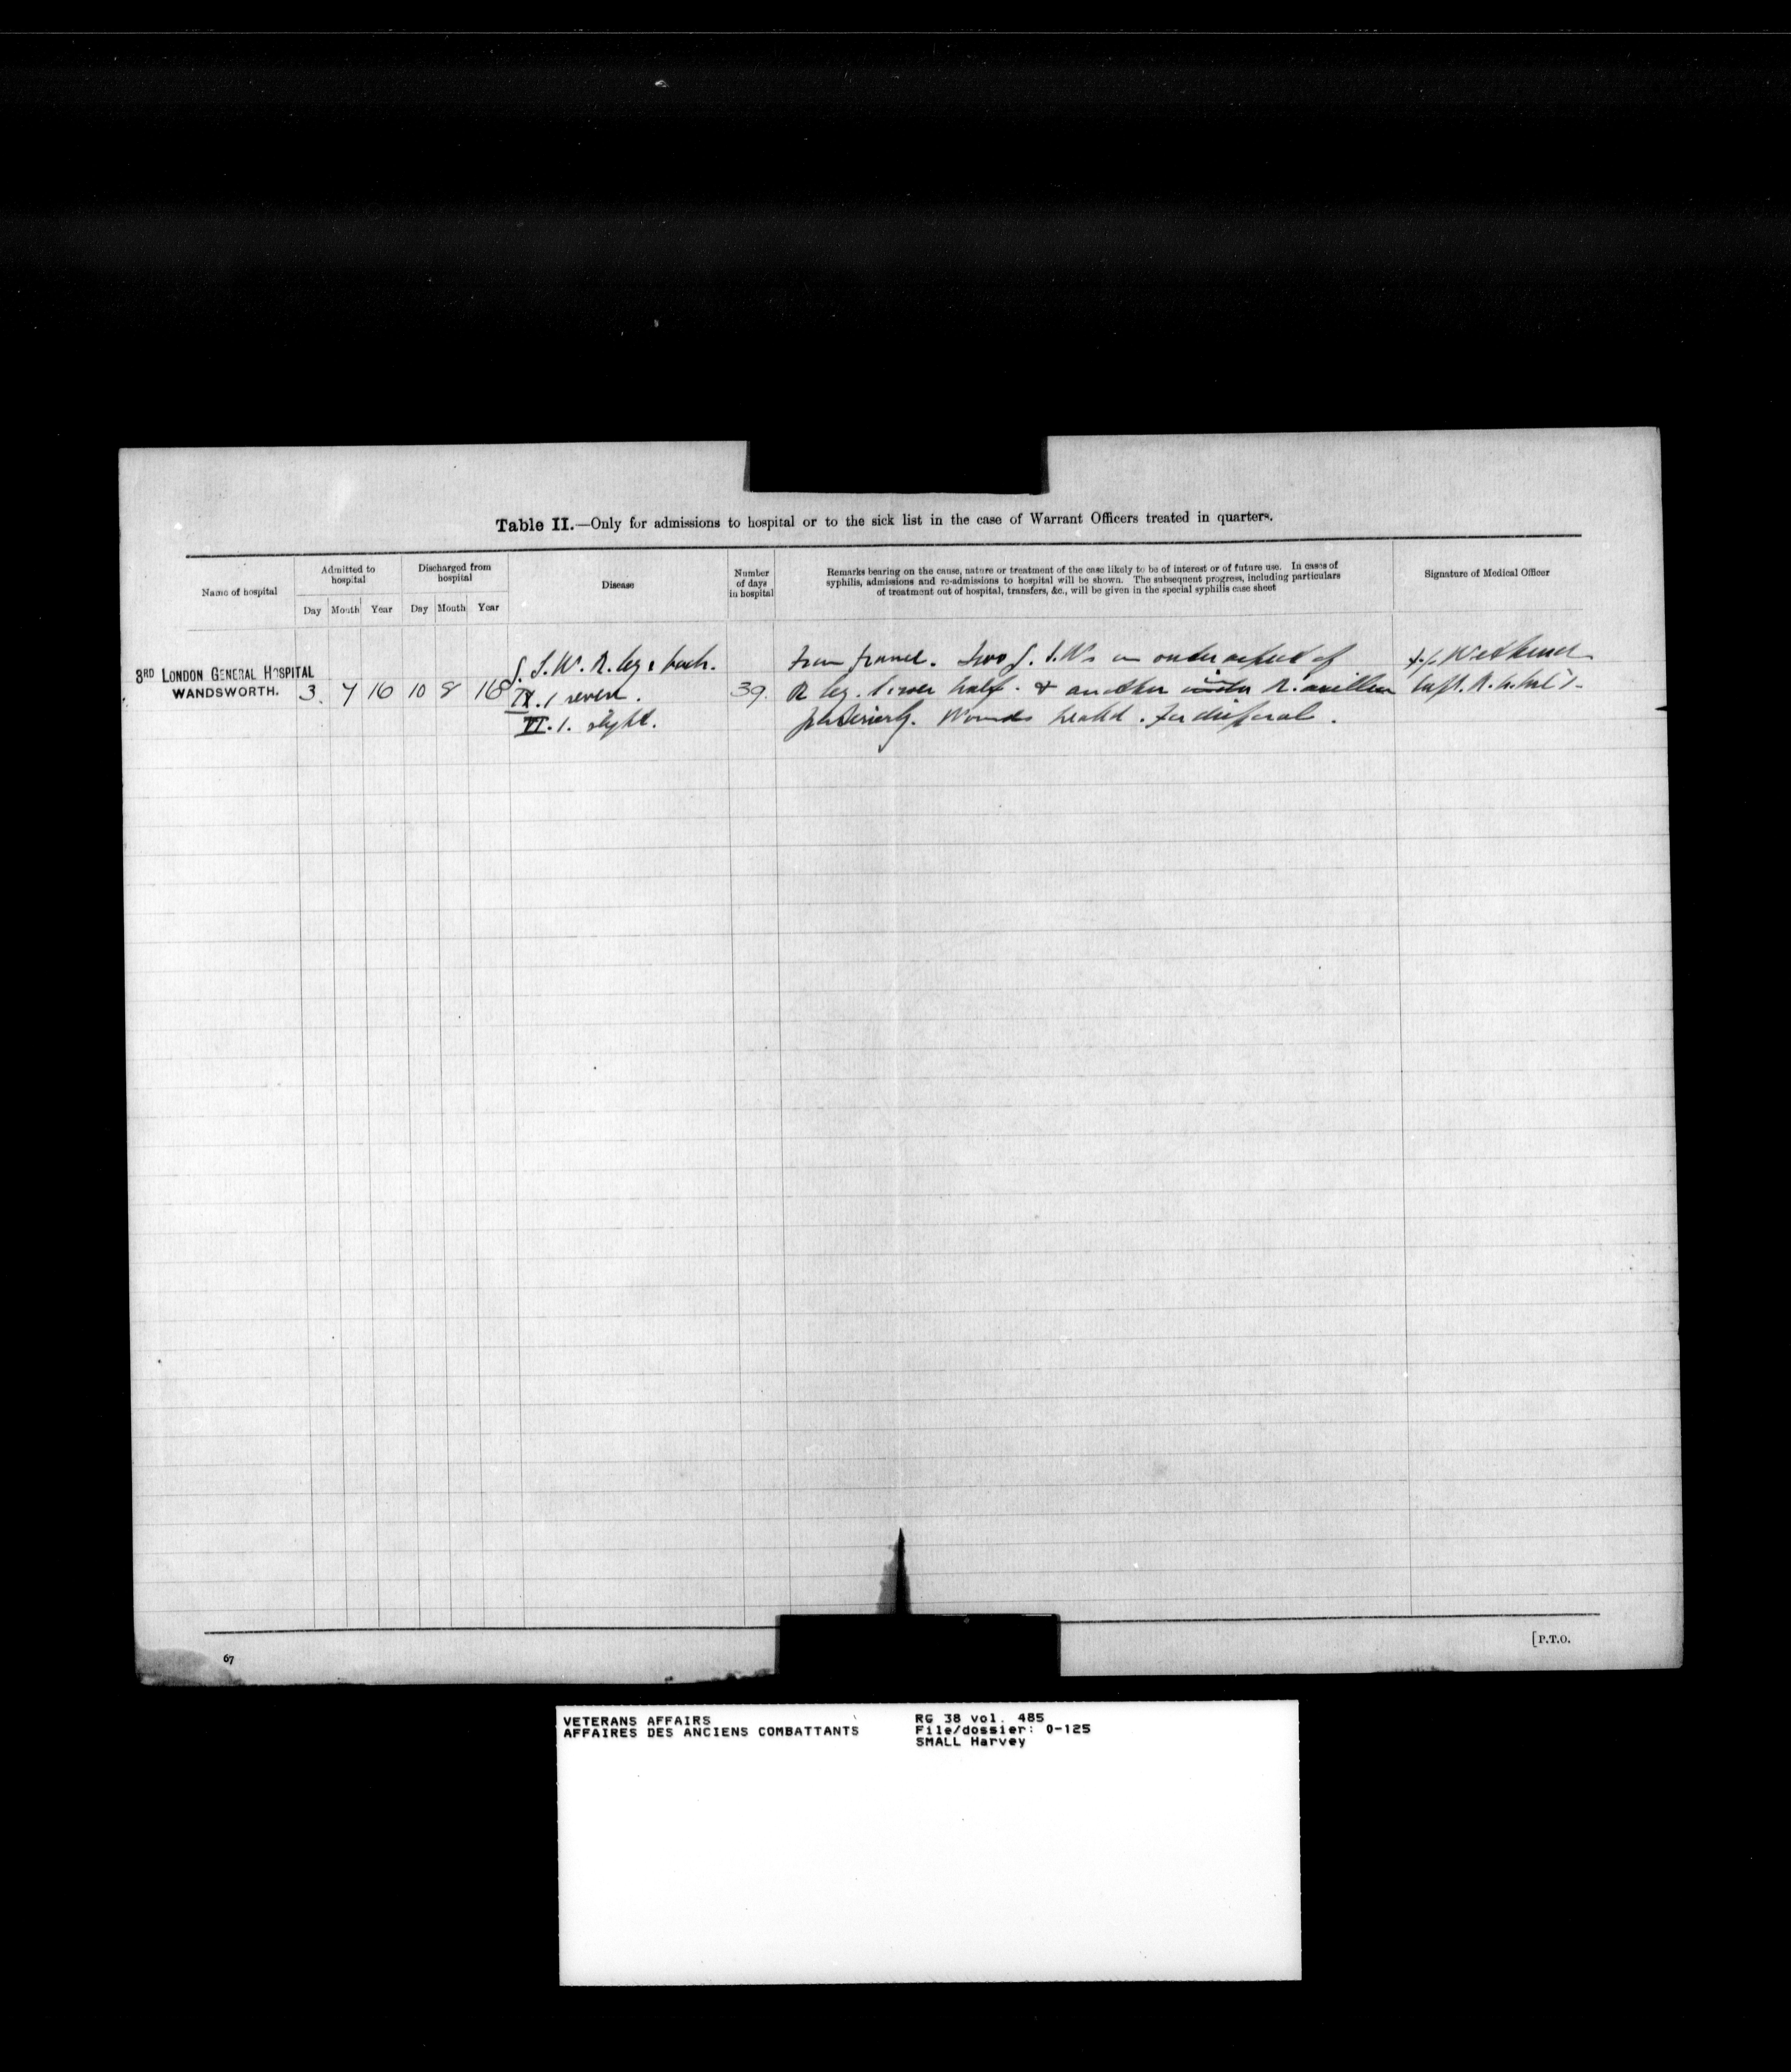 Table II.—Only for admissions to hospital or to the sick list in the case of Warrant Officers treated in quarters.
Name of hospital
Admitted to hospital
Day Month Year
Discharged from hospital
Day Month Year
Disease
Number of days in hospital
Remarks bearing on the cause, nature or treatment of the case likely to be of interest or of future use. In cases of
syphilis, admissions and re-admissions to hospital will be shown. The subsequent progress, including particulars
of treatment out of hospital, transfers, &c., will be given in the special syphilis case sheet
Signature of Medical Officer
3RD LONDON GENERAL HOSPITAL
WANDSWORTH.
3. 7 16 10 8 16
G. S. W. R. leg & back.
IX. 1 severe.
VI. 1. slight.
39.
From France. Two G. S. Ws on outer aspect of
R leg. lower half. & another R. axilla
posteriorly. Wounds healed. For disposal.
Capt. R.
67
[P.T.O.
VETERANS AFFAIRS
AFFAIRES DES ANCIENS COMBATTANTS
RG 38 vol. 485
File/dossier: 0-125
SMALL Harvey